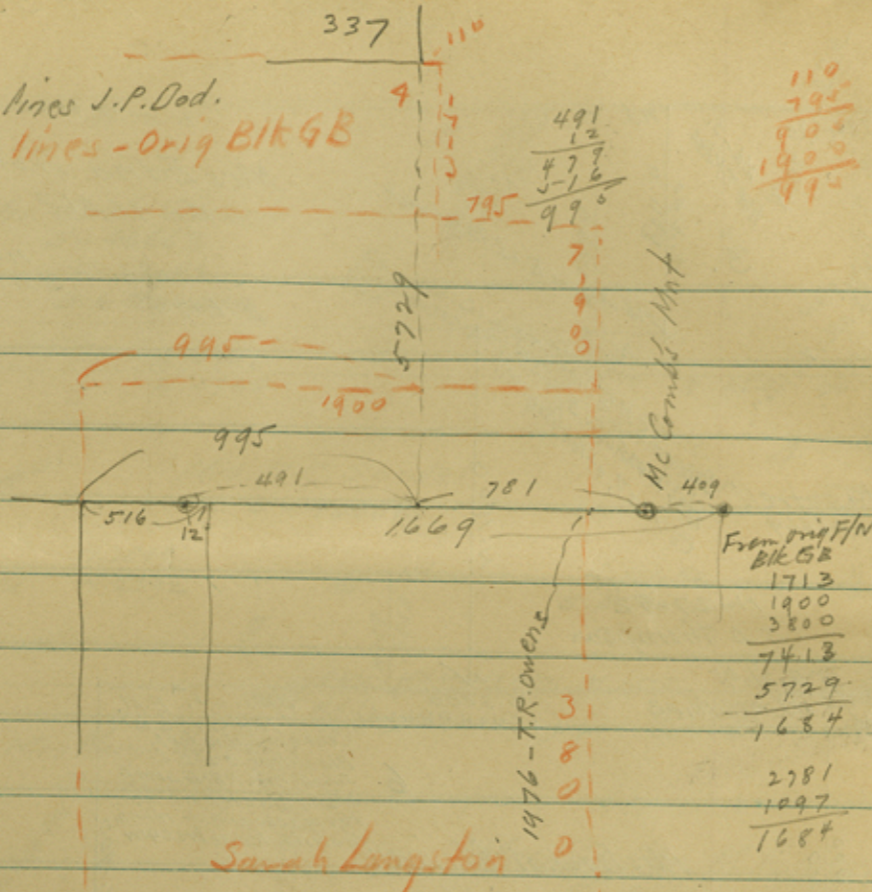 337
110
lines J.P. Dod.
lines - Orig Blk GB
4
1713
491
12
479
516
995
110
795
905
1900
995
795
7
1900
5729
McCombs Mnt
995
1900
995
491
781
409
516
12
1669
From orig F/N
Blk GB
1713
1900
3800
7413
5729
1684
2781
1097
1684
1976 - T.R. Owens
3800
Sarah Langston